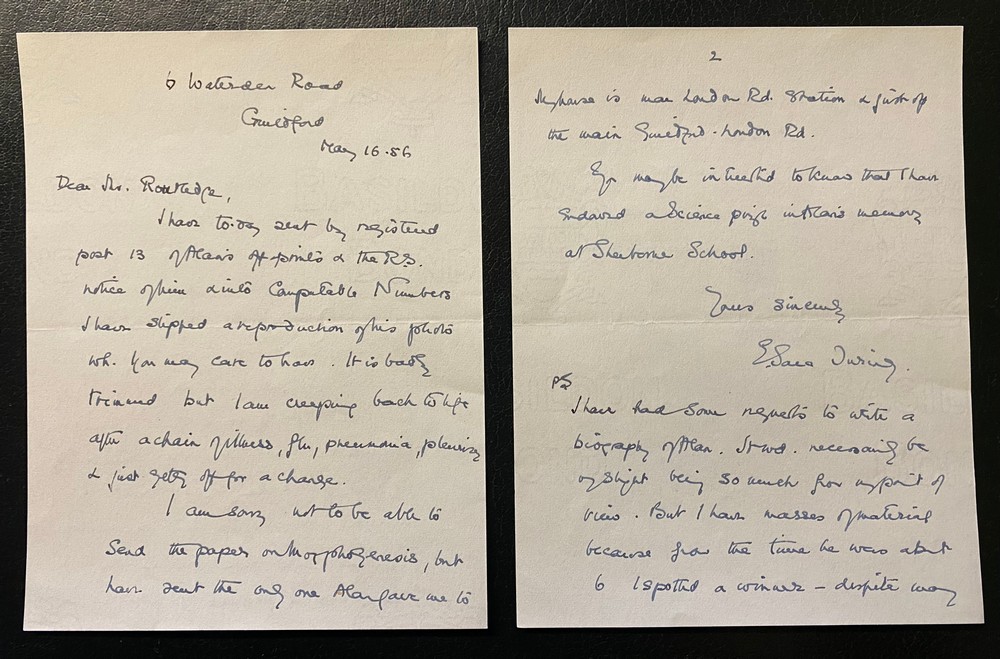 6 Waterden Road
Guildford
May 16. 56
Dear Mr. Routledge,
I have to-day sent by registered
post 13 of Alan's off-prints & the R.S.
notice of him & into Computable Numbers
I have slipped a reproduction of his photo
wh. you may care to have. It is badly
trimmed but I am creeping back to life
after a chain of illness, flu, pneumonia, pleurisy
& just getting off for a change.
I am sorry not to be able to
send the paper on Morphogenesis, but
have sent the only one Alan gave me to
2
My house is near London Rd. Station & just off
the main Guildford-London Rd.
You may be interested to know that I have
endowed a Science prize in Alan's memory
at Sherborne School.
Yours sincerely
E. Sara Turing.
PS
I have had some requests to write a
biography of Alan. It wd. necessarily be
slight being so much from my point of
view. But I have masses of material
because from the time he was about
6 I spotted a winner – despite many